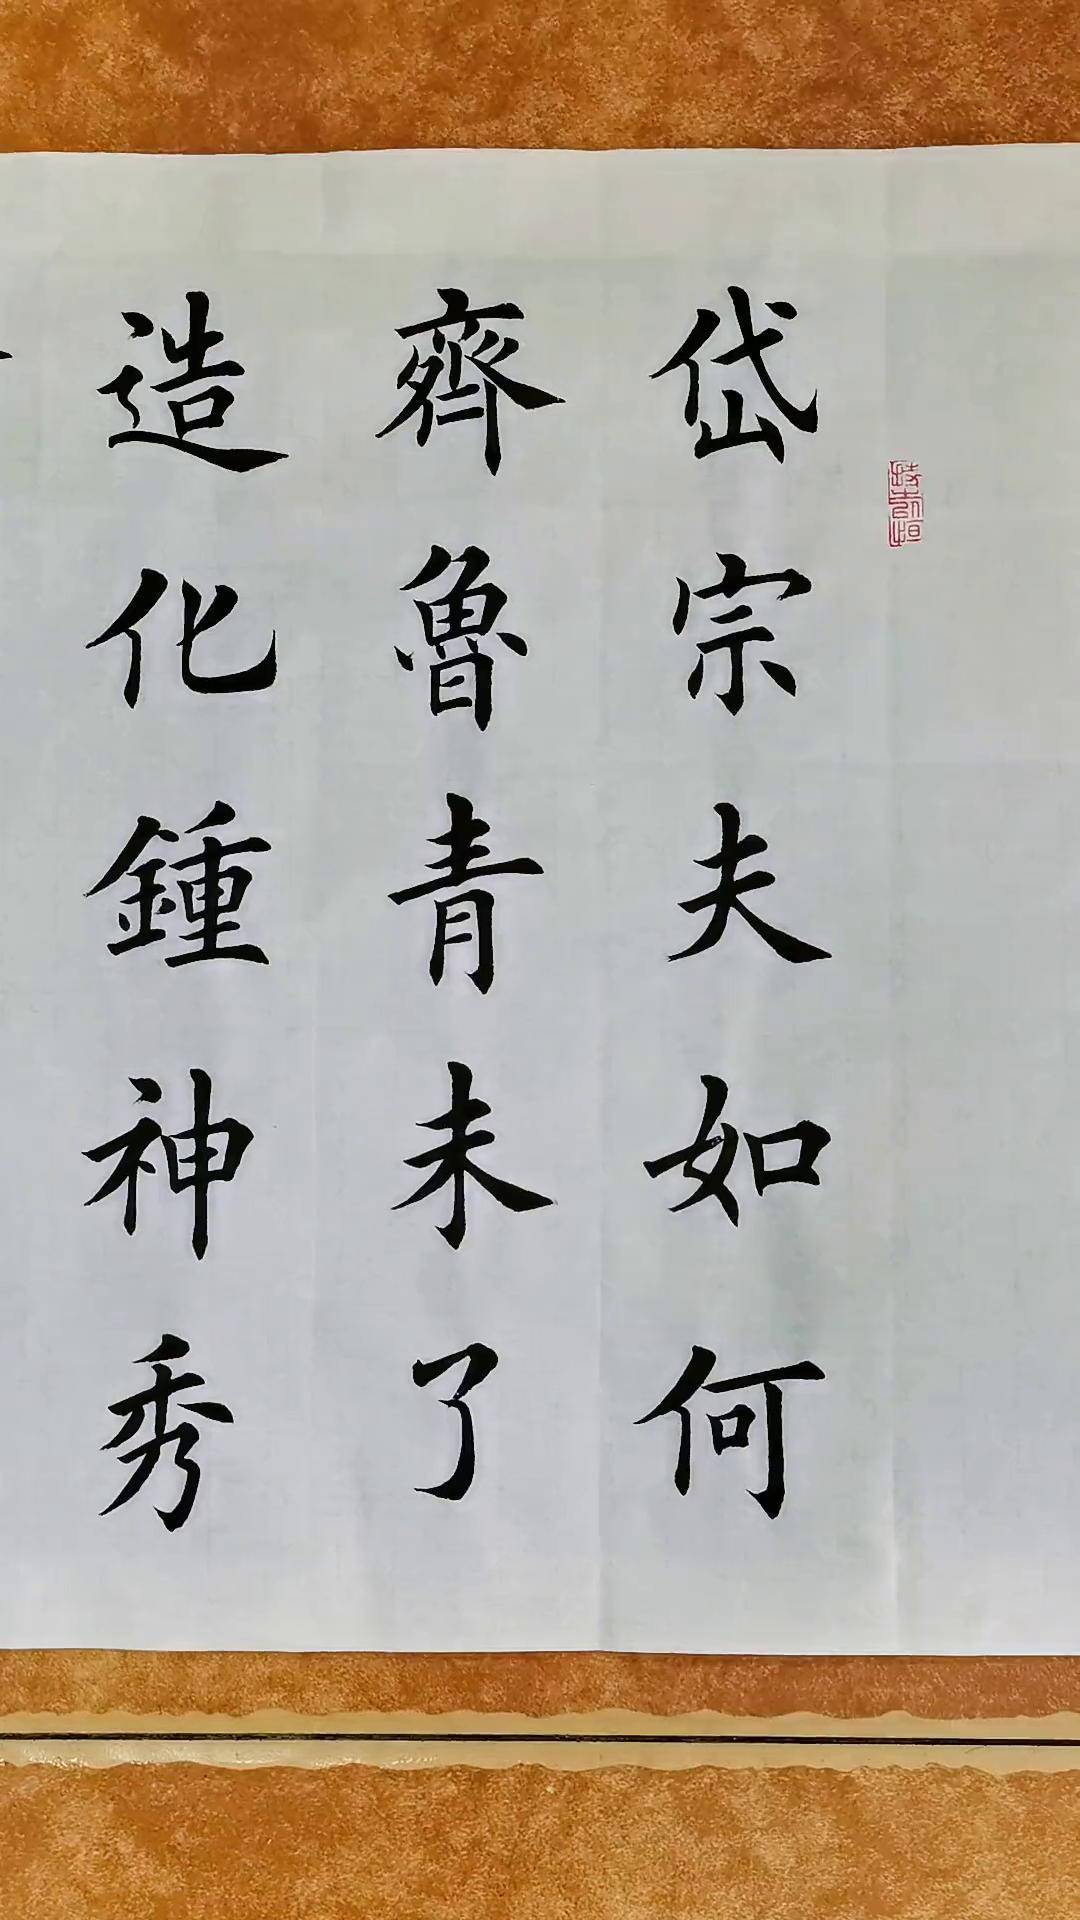 岱宗夫如何
齊魯青未了
造化鍾神秀